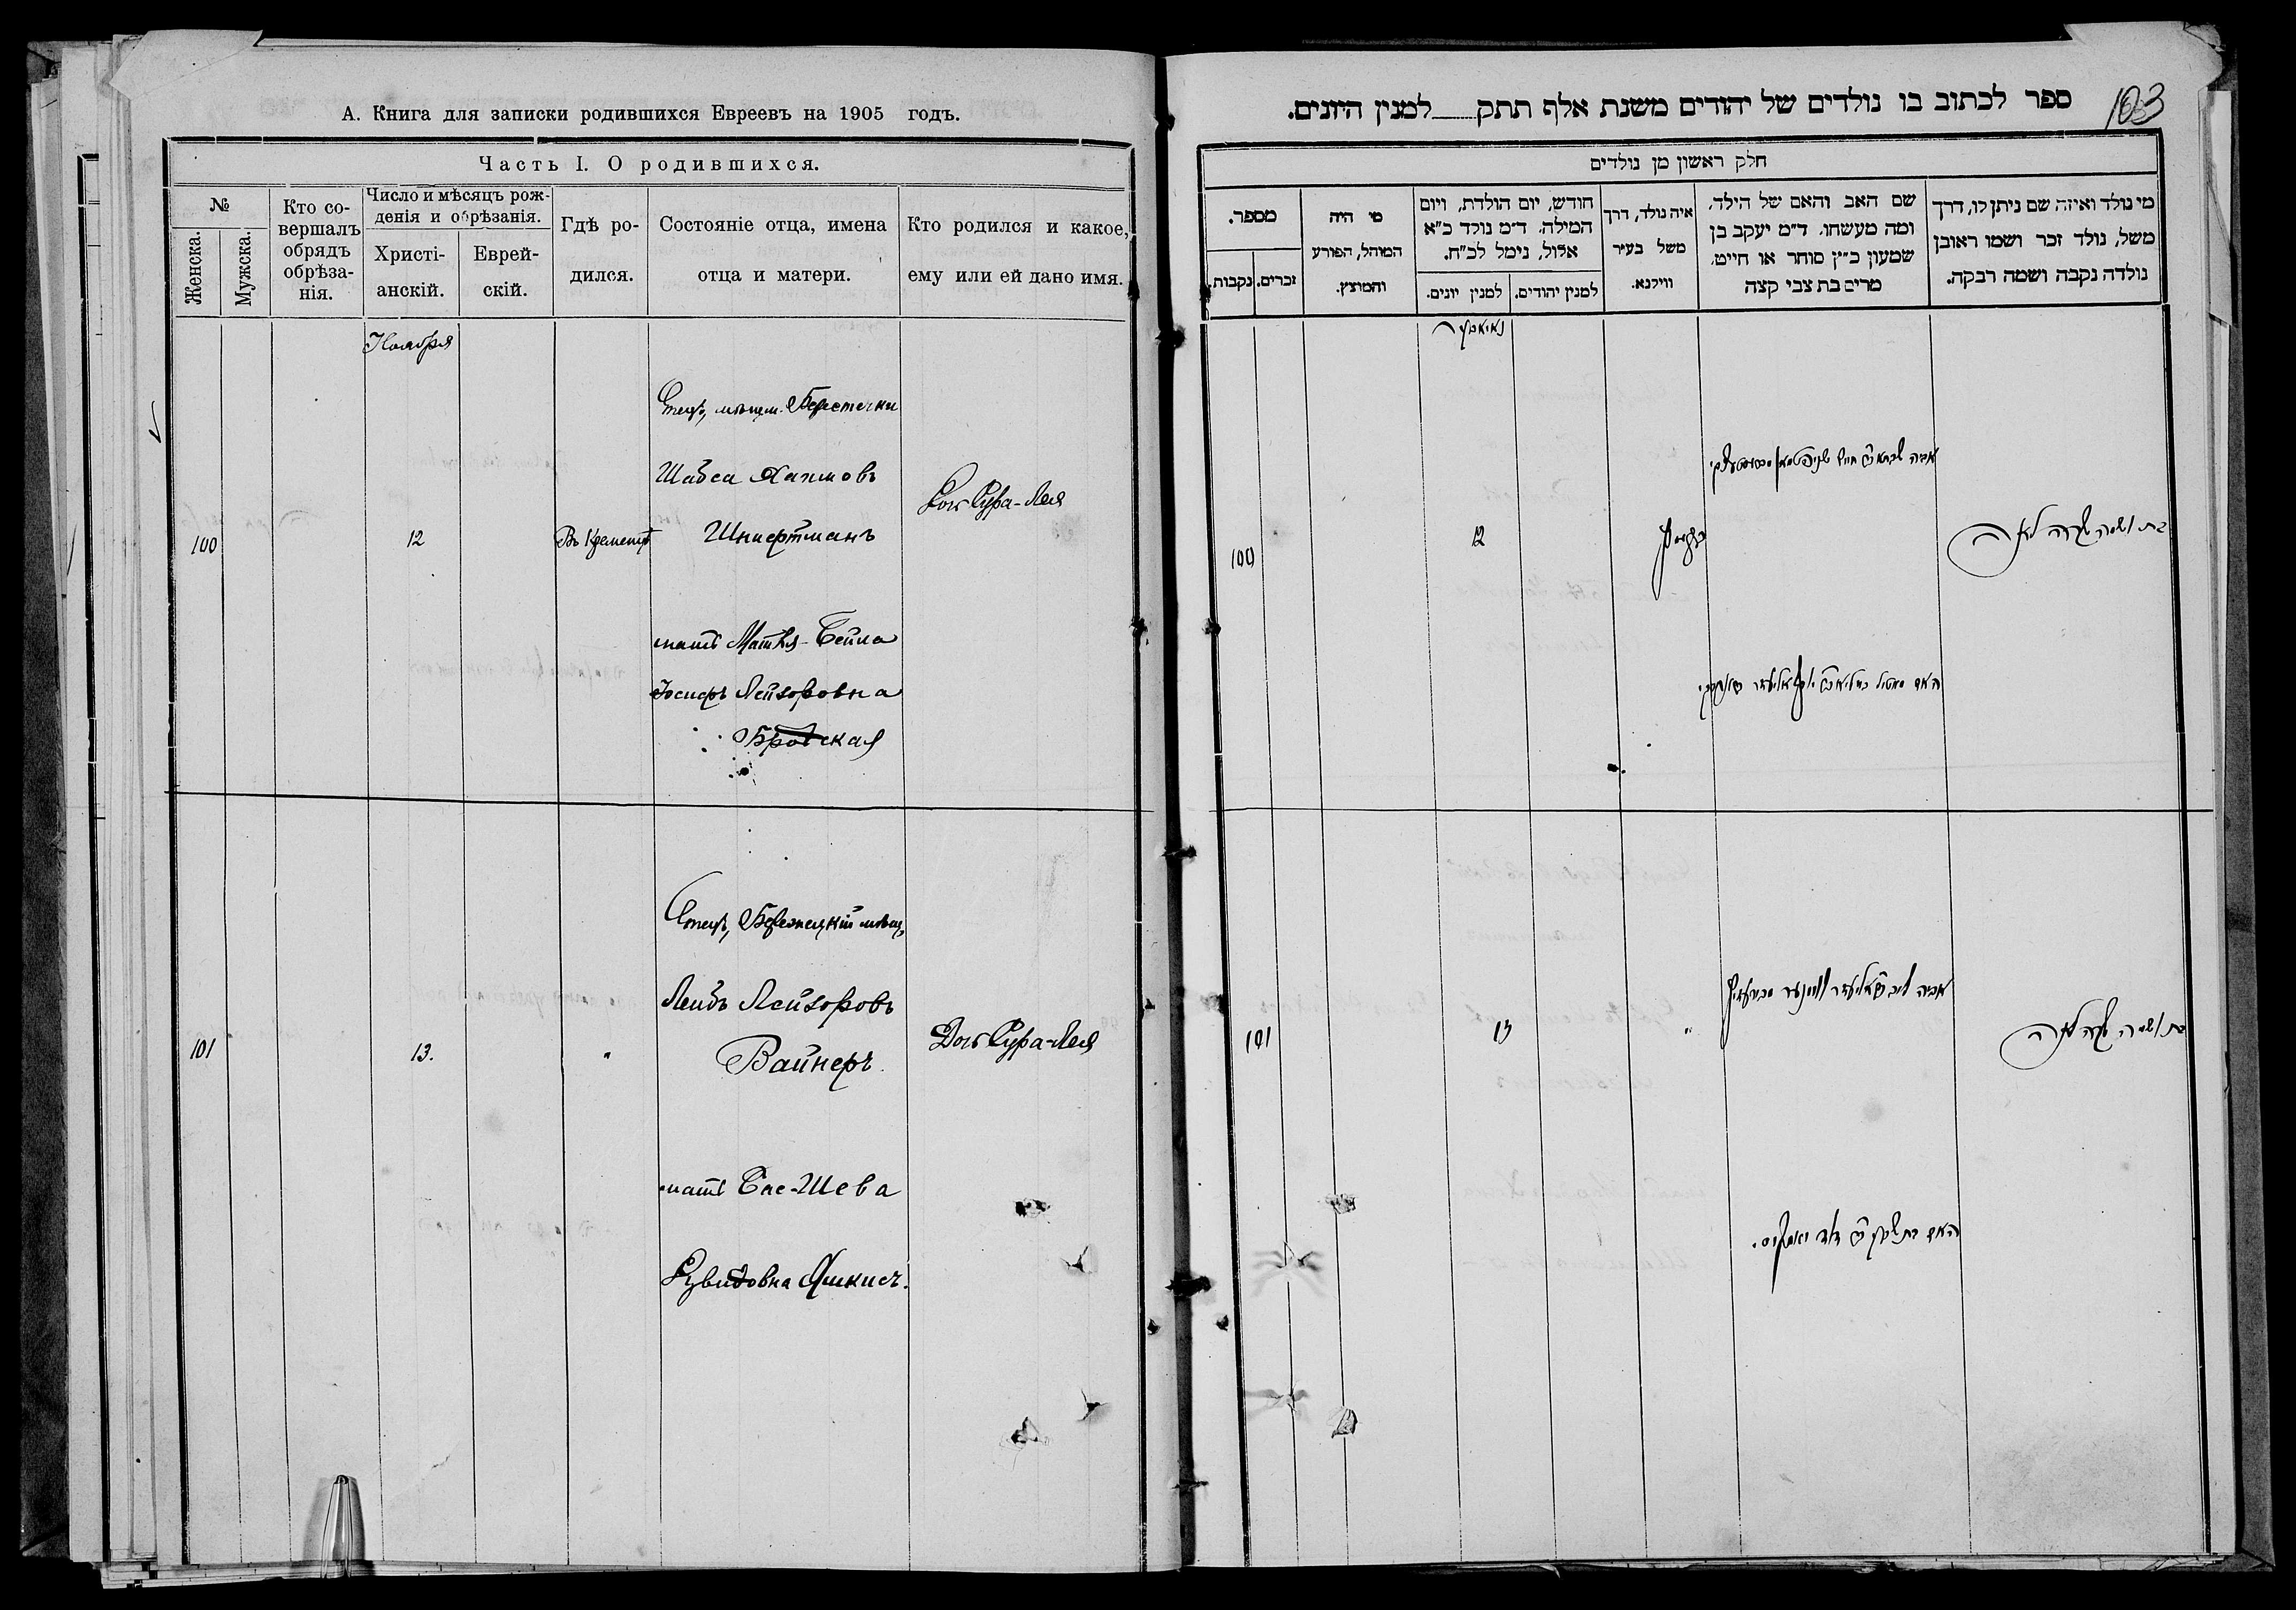 А. Книга для записки родившихся Евреевъ на 1905 годъ.
Часть I. О родившихся.
№
Женска.
Мужска.
Кто со-
вершалъ
обрядъ
обрѣза-
нія.
Число и мѣсяцъ рож-
денія и обрѣзанія.
Христі-
анскій.
Еврей-
скій.
Гдѣ ро-
дился.
Состояніе отца, имена
отца и матери.
Кто родился и какое,
ему или ей дано имя.
Ноября
100
12
Въ Кременцѣ
Отецъ, мѣщан. Берестечки
Шабса Хаимовъ
Шниертманъ
мать Матля-Бейла
Іосифъ Лейзоровна
Бродская
Дочь Сура-Лея
101
13.
"
Отецъ, Бережецкій мѣщ.
Лейбъ Лейзоровъ
Вайнеръ
мать Бас-Шева
Дувидовна Яшкисъ.
Дочь Сура-Лея
ספר לכתוב בו נולדים של יהודים משנת אלף תתק למנין היונים.
103
חלק ראשון מן נולדים
מי נולד ואיזה שם ניתן לו, דרך
משל, נולד זכר ושמו ראובן
נולדה נקבה ושמה רבקה.
שם האב והאם של הילד,
ומה מעשהו. ד״מ יעקב בן
שמעון כ״ץ סוחר או חייט,
מרים בת צבי קצה
איה נולד, דרך
משל בעיר
ווילנא.
חודש, יום הולדת, ויום
המילה. ד״מ נולד כ״א
אלול, נימל לכ״ח.
למנין יהודים.
למנין יונים.
מי היה
המוהל, הפורע
והמוצץ.
מספר.
זכרים.
נקבות.
בת ושמה שרה לאה
12
100
בת ושמה שרה לאה
"
13
101